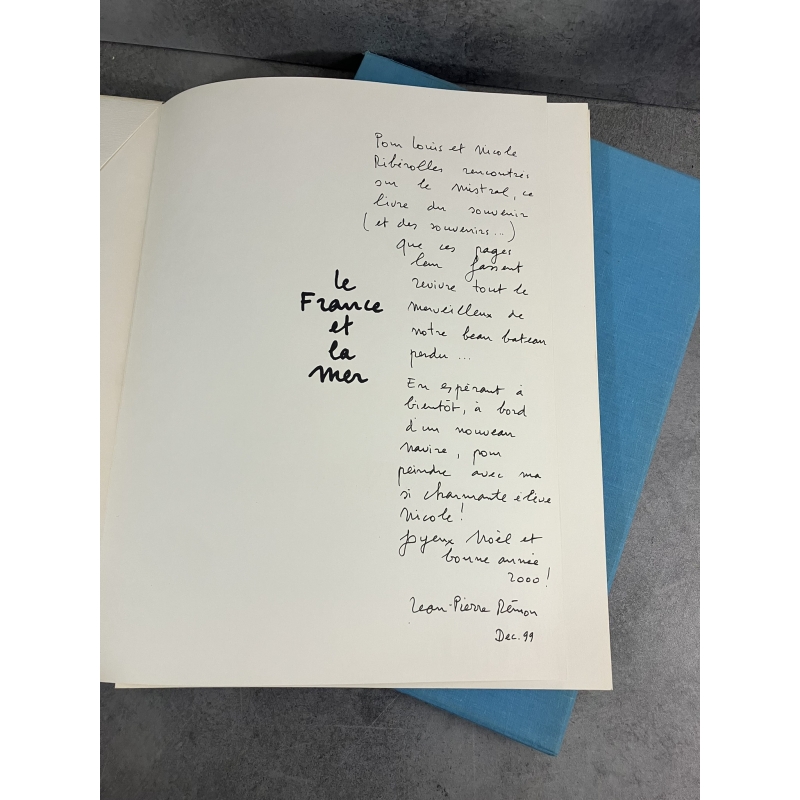 Pour Louis et Nicole
Ribérolles rencontrés
sur le mistral, ce
livre du souvenir
(et des souvenirs...)
que ces pages
leur fassent
revivre tout le
merveilleux de
notre beau bateau
perdu ...
En espérant à
bientôt, à bord
d'un nouveau
navire, pour
peindre avec ma
si charmante élève
Nicole!
Joyeux Noël et
bonne année
2000!
Jean-Pierre Rémon
Dec. 99
le
France
et
la
mer